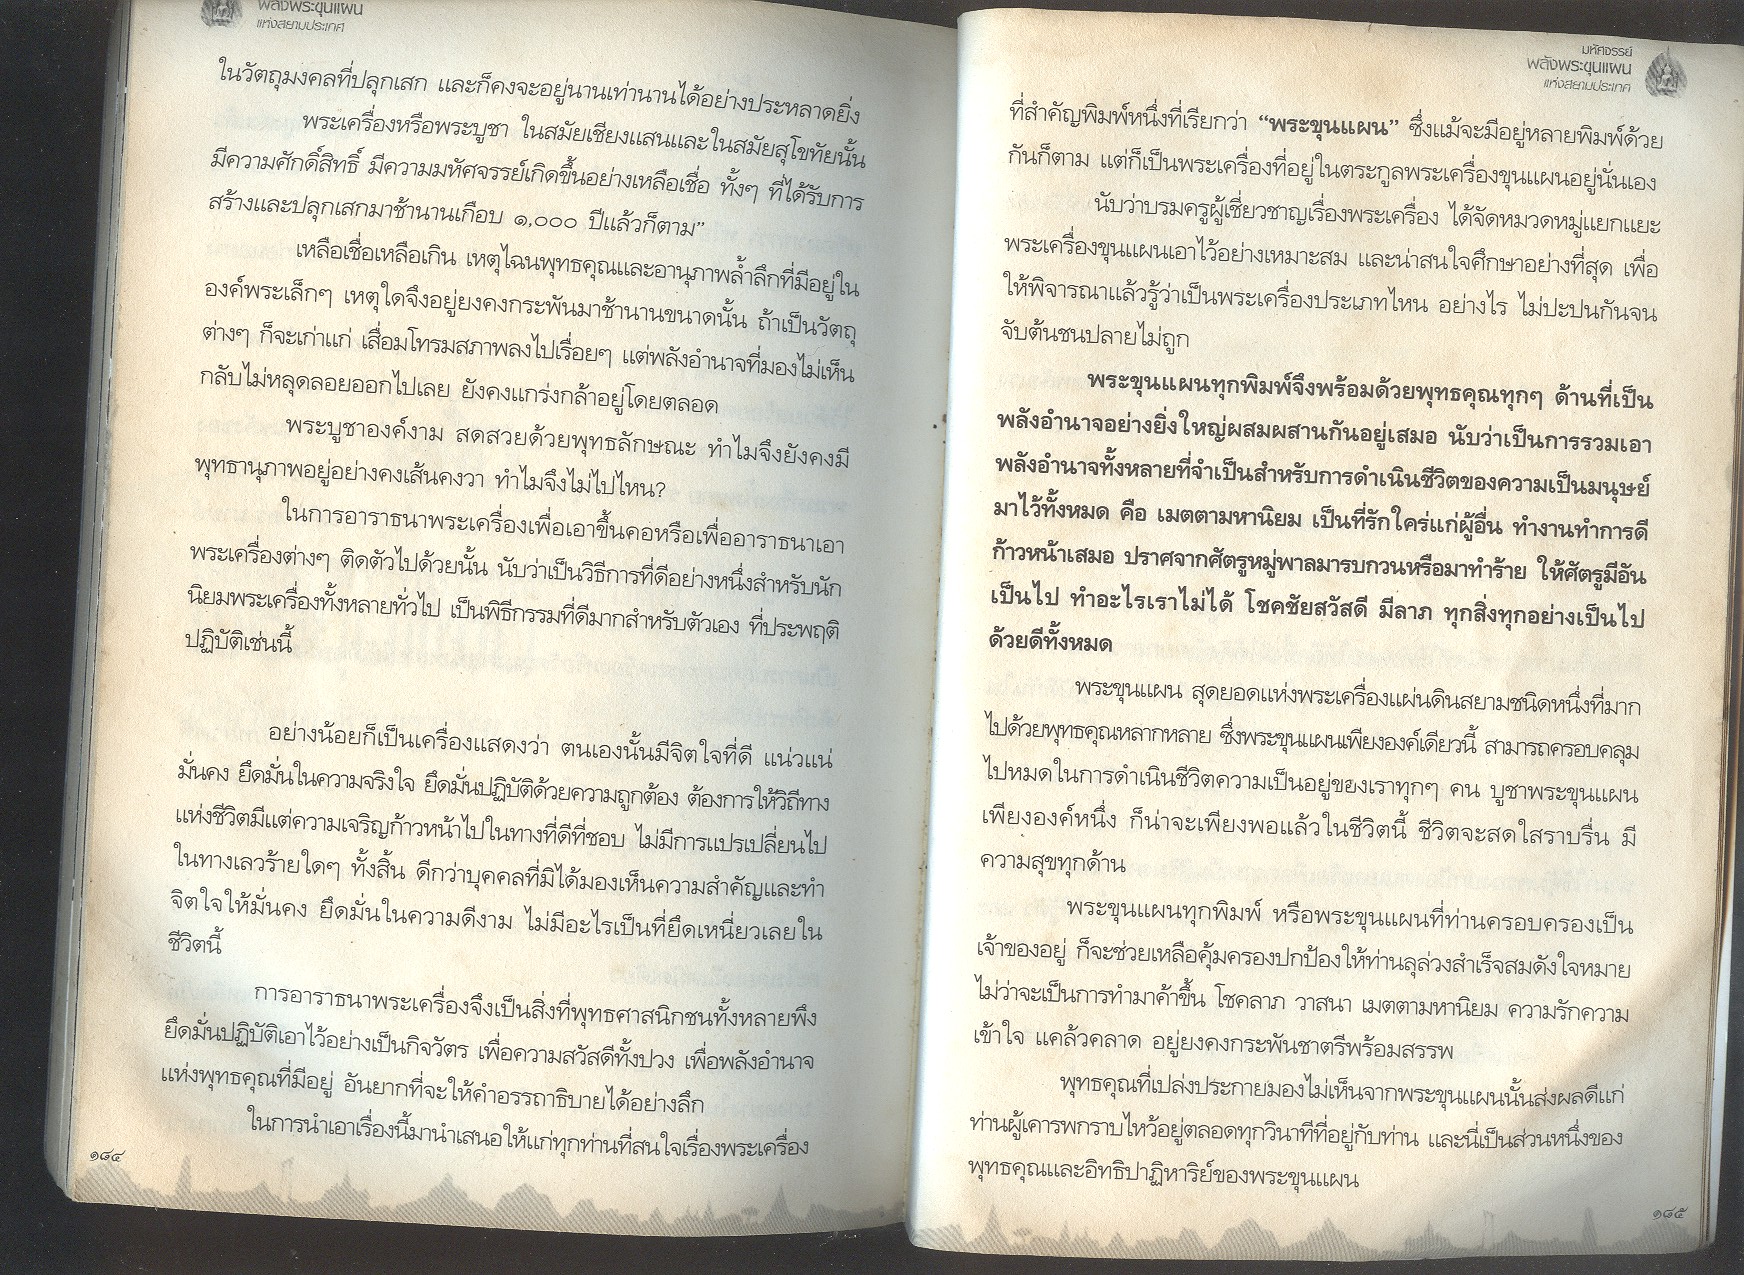 พลังพระขุนแผน
แห่งสยามประเทศ
ในวัตถุมงคลที่ปลุกเสก และก็คงจะอยู่นานเท่านานได้อย่างประหลาดยิ่ง
พระเครื่องหรือพระบูชา ในสมัยเชียงแสนและในสมัยสุโขทัยนั้น
มีความศักดิ์สิทธิ์ มีความมหัศจรรย์เกิดขึ้นอย่างเหลือเชื่อ ทั้งๆ ที่ได้รับการ
สร้างและปลุกเสกมาช้านานเกือบ ๑,๐๐๐ ปีแล้วก็ตาม”
เหลือเชื่อเหลือเกิน เหตุไฉนพุทธคุณและอานุภาพล้ำลึกที่มีอยู่ใน
องค์พระเล็กๆ เหตุใดจึงอยู่ยงคงกระพันมาช้านานขนาดนั้น ถ้าเป็นวัตถุ
ต่างๆ ก็จะเก่าแก่ เสื่อมโทรมสภาพลงไปเรื่อยๆ แต่พลังอำนาจที่มองไม่เห็น
กลับไม่หลุดลอยออกไปเลย ยังคงแกร่งกล้าอยู่โดยตลอด
พระบูชาองค์งาม สดสวยด้วยพุทธลักษณะ ทำไมจึงยังคงมี
พุทธานุภาพอยู่อย่างคงเส้นคงวา ทำไมจึงไม่ไปไหน?
ในการอาราธนาพระเครื่องเพื่อเอาขึ้นคอหรือเพื่ออาราธนาเอา
พระเครื่องต่างๆ ติดตัวไปด้วยนั้น นับว่าเป็นวิธีการที่ดีอย่างหนึ่งสำหรับนัก
นิยมพระเครื่องทั้งหลายทั่วไป เป็นพิธีกรรมที่ดีมากสำหรับตัวเอง ที่ประพฤติ
ปฏิบัติเช่นนี้
อย่างน้อยก็เป็นเครื่องแสดงว่า ตนเองนั้นมีจิตใจที่ดี แน่วแน่
มั่นคง ยึดมั่นในความจริงใจ ยึดมั่นปฏิบัติด้วยความถูกต้อง ต้องการให้วิถีทาง
แห่งชีวิตมีแต่ความเจริญก้าวหน้าไปในทางที่ดีที่ชอบ ไม่มีการแปรเปลี่ยนไป
ในทางเลวร้ายใดๆ ทั้งสิ้น ดีกว่าบุคคลที่มิได้มองเห็นความสำคัญและทำ
จิตใจให้มั่นคง ยึดมั่นในความดีงาม ไม่มีอะไรเป็นที่ยึดเหนี่ยวเลยใน
ชีวิตนี้
การอาราธนาพระเครื่องจึงเป็นสิ่งที่พุทธศาสนิกชนทั้งหลายพึง
ยึดมั่นปฏิบัติเอาไว้อย่างเป็นกิจวัตร เพื่อความสวัสดีทั้งปวง เพื่อพลังอำนาจ
แห่งพุทธคุณที่มีอยู่ อันยากที่จะให้คำอรรถาธิบายได้อย่างลึก
ในการนำเอาเรื่องนี้มานำเสนอให้แก่ทุกท่านที่สนใจเรื่องพระเครื่อง
๑๘๔
มหัศจรรย์
พลังพระขุนแผน
แห่งสยามประเทศ
ที่สำคัญพิมพ์หนึ่งที่เรียกว่า “พระขุนแผน” ซึ่งแม้จะมีอยู่หลายพิมพ์ด้วย
กันก็ตาม แต่ก็เป็นพระเครื่องที่อยู่ในตระกูลพระเครื่องขุนแผนอยู่นั่นเอง
นับว่าบรมครูผู้เชี่ยวชาญเรื่องพระเครื่อง ได้จัดหมวดหมู่แยกแยะ
พระเครื่องขุนแผนเอาไว้อย่างเหมาะสม และน่าสนใจศึกษาอย่างที่สุด เพื่อ
ให้พิจารณาแล้วรู้ว่าเป็นพระเครื่องประเภทไหน อย่างไร ไม่ปะปนกันจน
จับต้นชนปลายไม่ถูก
พระขุนแผนทุกพิมพ์จึงพร้อมด้วยพุทธคุณทุกๆ ด้านที่เป็น
พลังอำนาจอย่างยิ่งใหญ่ผสมผสานกันอยู่เสมอ นับว่าเป็นการรวมเอา
พลังอำนาจทั้งหลายที่จำเป็นสำหรับการดำเนินชีวิตของความเป็นมนุษย์
มาไว้ทั้งหมด คือ เมตตามหานิยม เป็นที่รักใคร่แก่ผู้อื่น ทำงานทำการดี
ก้าวหน้าเสมอ ปราศจากศัตรูหมู่พาลมารบกวนหรือมาทำร้าย ให้ศัตรูมีอัน
เป็นไป ทำอะไรเราไม่ได้ โชคชัยสวัสดี มีลาภ ทุกสิ่งทุกอย่างเป็นไป
ด้วยดีทั้งหมด
พระขุนแผน สุดยอดแห่งพระเครื่องแผ่นดินสยามชนิดหนึ่งที่มาก
ไปด้วยพุทธคุณหลากหลาย ซึ่งพระขุนแผนเพียงองค์เดียวนี้ สามารถครอบคลุม
ไปหมดในการดำเนินชีวิตความเป็นอยู่ของเราทุกๆ คน บูชาพระขุนแผน
เพียงองค์หนึ่ง ก็น่าจะเพียงพอแล้วในชีวิตนี้ ชีวิตจะสดใสราบรื่น มี
ความสุขทุกด้าน
พระขุนแผนทุกพิมพ์ หรือพระขุนแผนที่ท่านครอบครองเป็น
เจ้าของอยู่ ก็จะช่วยเหลือคุ้มครองปกป้องให้ท่านลุล่วงสำเร็จสมดังใจหมาย
ไม่ว่าจะเป็นการทำมาค้าขึ้น โชคลาภ วาสนา เมตตามหานิยม ความรักความ
เข้าใจ แคล้วคลาด อยู่ยงคงกระพันชาตรีพร้อมสรรพ
พุทธคุณที่เปล่งประกายมองไม่เห็นจากพระขุนแผนนั้นส่งผลดีแก่
ท่านผู้เคารพกราบไหว้อยู่ตลอดทุกวินาทีที่อยู่กับท่าน และนี่เป็นส่วนหนึ่งของ
พุทธคุณและอิทธิปาฏิหาริย์ของพระขุนแผน
๑๘๕